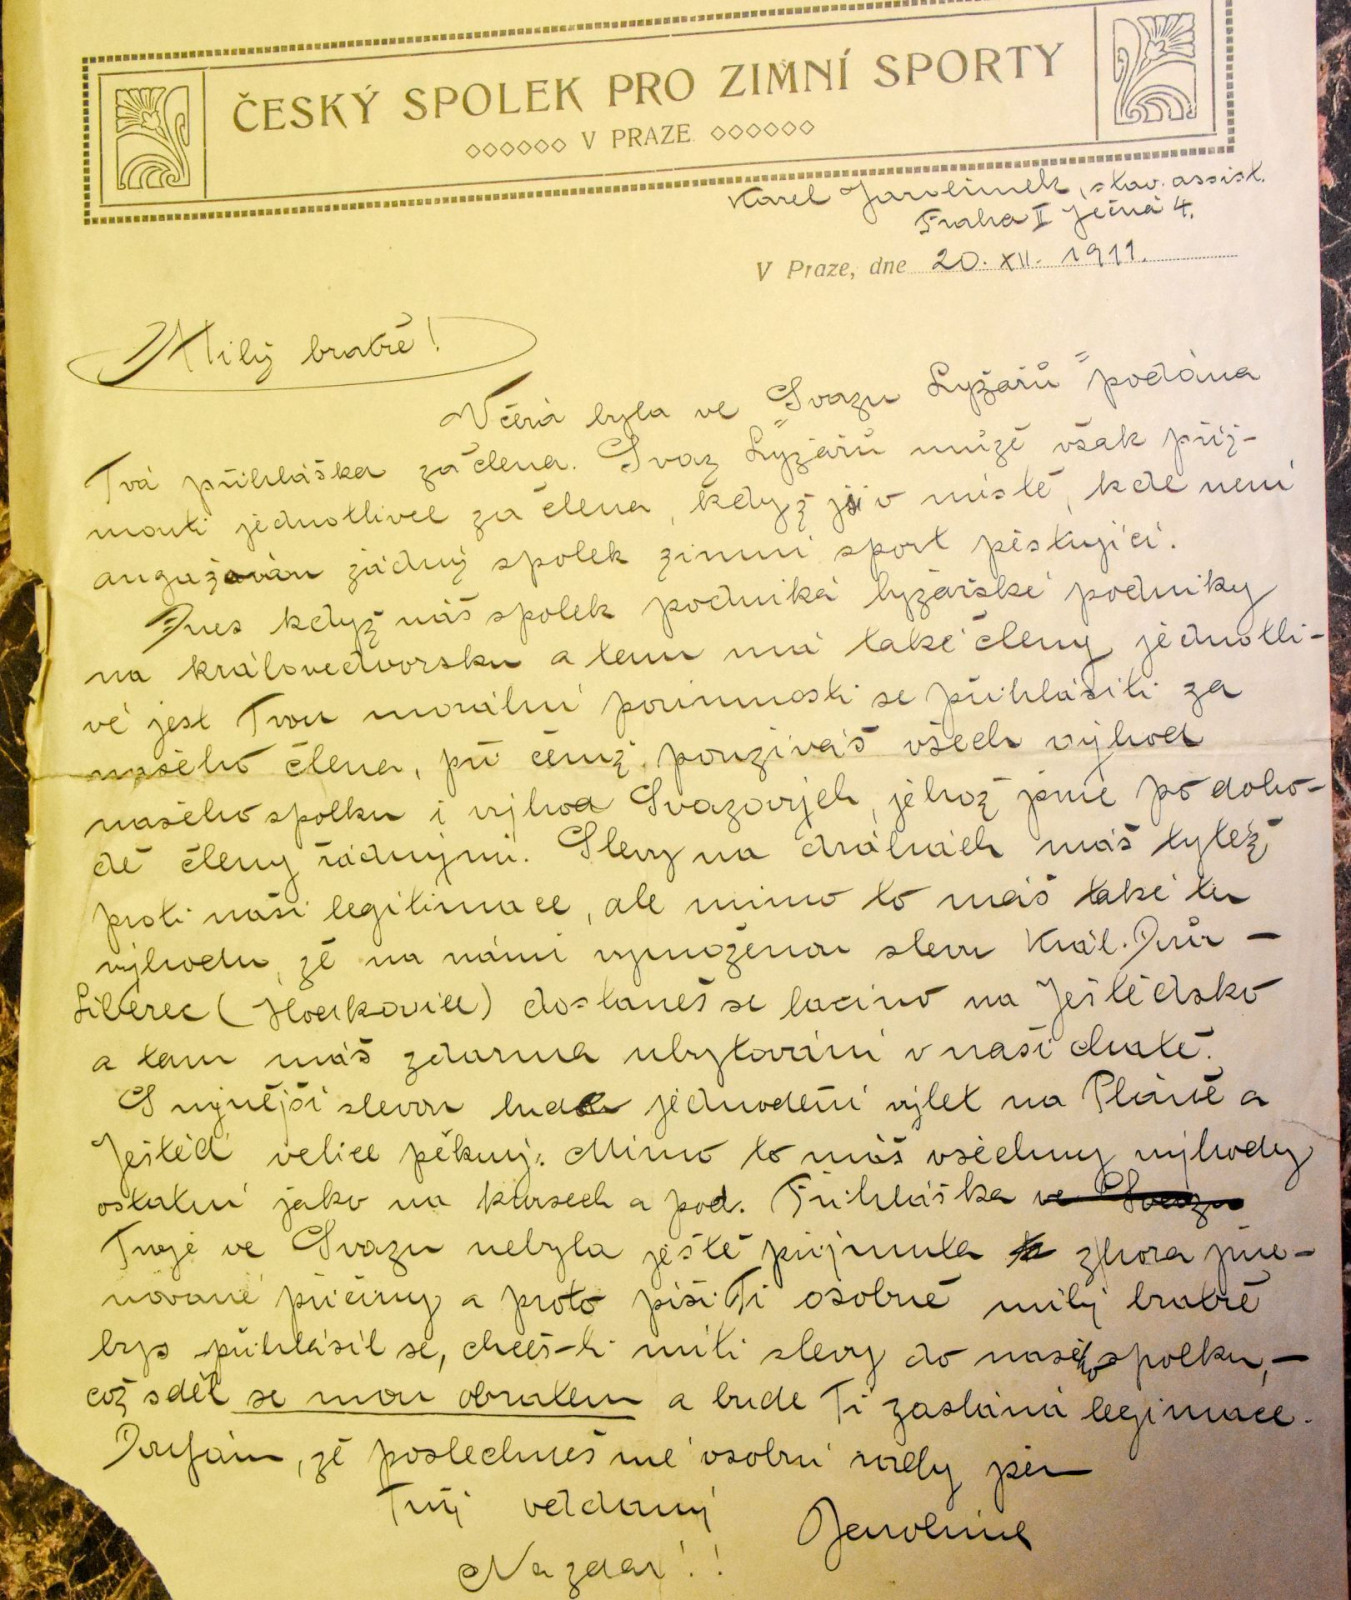 ČESKÝ SPOLEK PRO ZIMNÍ SPORTY
V PRAZE
Karel Jarolímek, stav. assist.
Praha II Ječná 4.
V Praze, dne 20. XII. 1911.
Milý bratře!
Včera byla ve "Svazu Lyžařů" podána
Tvá přihláška za člena. Svaz Lyžařů může však přij-
mouti jednotlivce za člena, když jsi v místě, kde není
angažován žádný spolek zimní sport pěstující.
Dnes když náš spolek podniká lyžařské podniky
na královédvorsku a tam má také členy jednotli-
vé jest Tvou morální povinností se přihlásiti za
našeho člena, při čemž používáš všech výhod
našeho spolku i výhod Svazových, jehož jsme po doho-
dě členy řádnými. Slevy na drahách máš tytéž
proti naší legitimace, ale mimo to máš také tu
výhodu, že na námi vymoženou slevu Král. Dvůr –
Liberec (Hodkovice) dostaneš se lacino na Ještědsko
a tam máš zdarma ubytování v naší chatě.
S nynější slevou bude jednodení výlet na Pláně a
Ještěd velice pěkný. Mimo to máš všechny výhody
ostatní jako na kursech a pod. Přihláška ve Svazu
Tvoje ve Svazu nebyla ještě přijmuta z shora jme-
nované příčiny a proto píši Ti osobně milý bratře
bys přihlásil se, chceš-li míti slevy do našeho spolku, –
což sděl se mnou obratem a bude Ti zaslána legimace.
Doufám, že poslechneš mé osobní rady jsem
Tvůj oddaný
Jarolímek
Na zdar!!